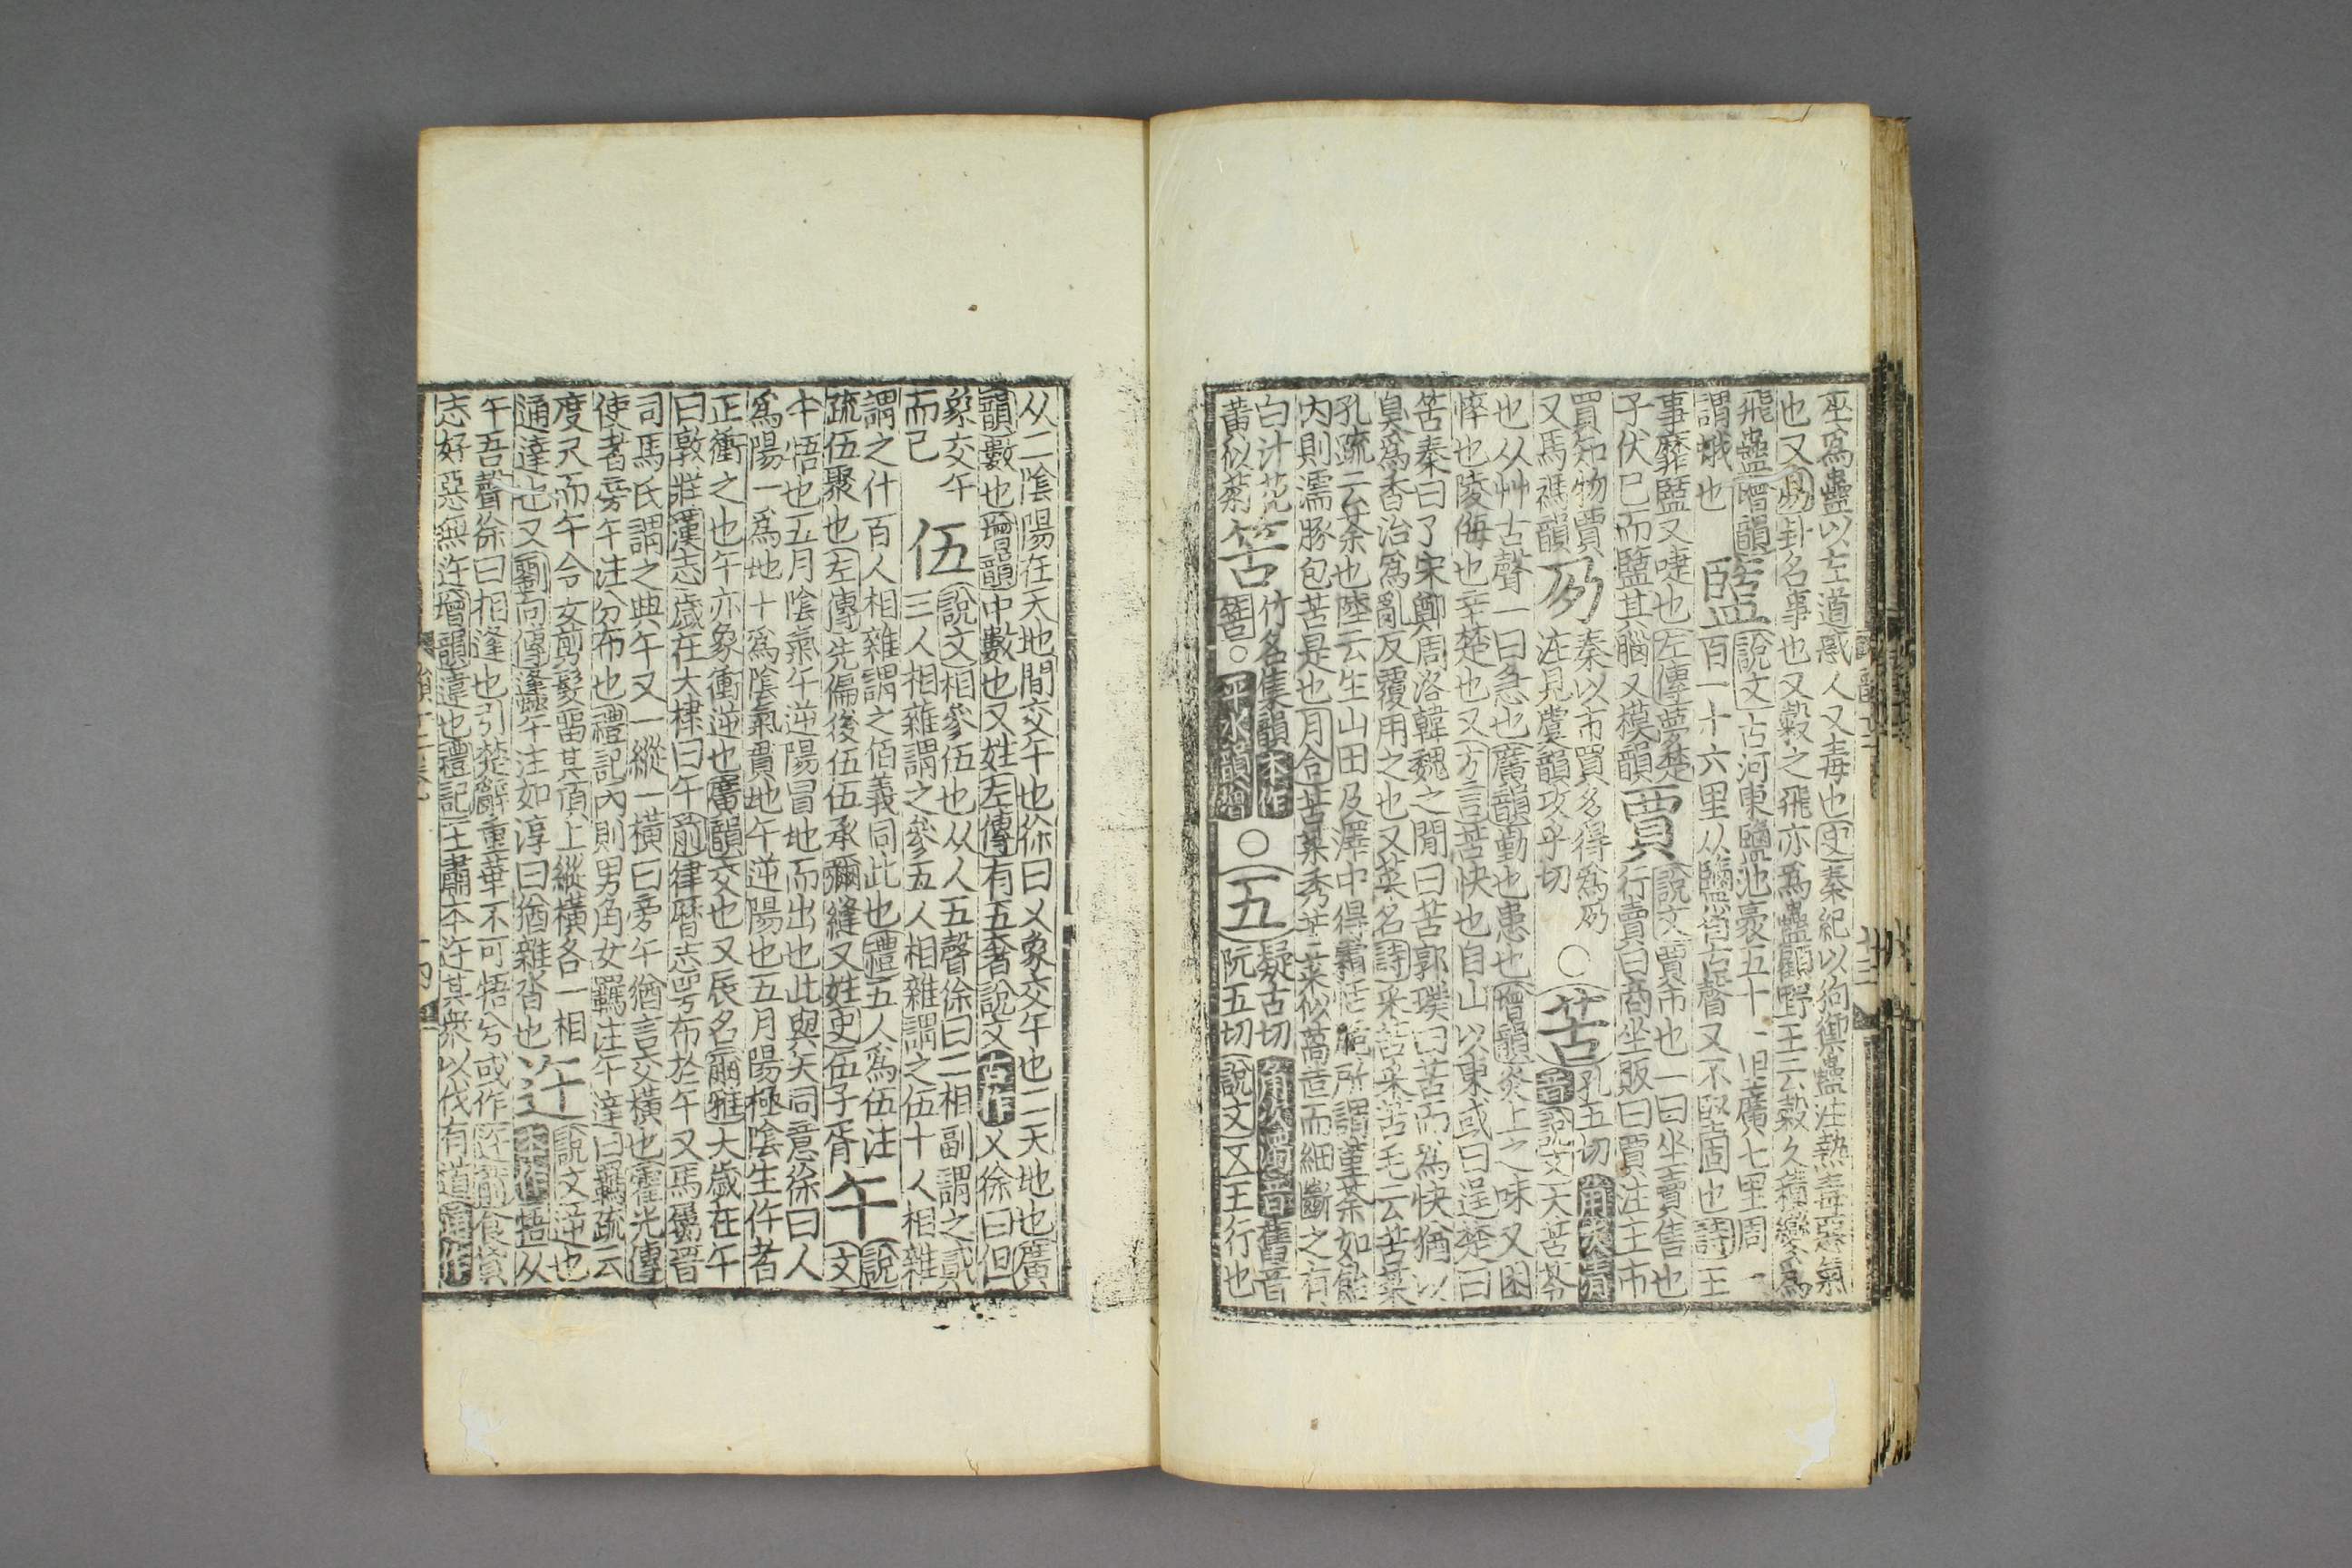 巫爲蠱以左道惑人又毒也史秦紀以狗禦蠱注熱毒惡氣
也又易卦名事也又穀之飛亦爲蠱顧野王云穀久積變爲
飛蠱增韻
謂蛾也
盬
說文古河東鹽池袤五十一里廣七里周
百一十六里从鹽省古聲又不堅固也詩王
事靡盬又啑也左傳夢楚
子伏己而盬其腦又模韻
賈
說文賈市也一曰坐賣售也
行賣曰商坐販曰賈注主市
買知物賈
又馬禡韻
夃
秦以市買多得爲夃
注見虞韻攻乎切
○
苦
孔五切角次清
音說文大苦苓
也从艸古聲一曰急也廣韻勤也患也增韻炎上之味又困
悴也陵侮也辛楚也又方言苦快也自山以東或曰逞楚曰
苦秦曰了宋鄭周洛韓魏之間曰苦郭璞曰苦而爲快猶以
臭爲香治爲亂反覆用之也又菜名詩采苦采苦毛云苦菜
孔疏云荼也陸云生山田及澤中得霜恬脆所謂堇荼如飴
內則濡豚包苦是也月令苦菜秀苦菜似萵苣而細斷之有
白汁花
黃似菊
筶
竹名集韻本作
○平水韻增
○
五
疑古切角次濁音舊音
阮五切說文五王行也
从二陰陽在天地間交午也徐曰乂象交午也二天地也廣
韻數也增韻中數也又姓左傳有五奢說文古作乂徐曰但
象交午
而已
伍
說文相參伍也从人五聲徐曰二相副謂之貳
三人相雜謂之參五人相雜謂之伍十人相雜
謂之什百人相雜謂之佰義同此也禮五人爲伍注
疏伍聚也左傳先偏後伍伍承彌縫又姓史伍子胥
午
說
文
啎也五月陰氣午逆陽冒地而出也此與矢同意徐曰人
爲陽一爲地十爲陰氣貫地午逆陽也五月陽極陰生仵者
正衝之也午亦象衝逆也廣韻交也又辰名爾雅大歲在午
曰敦牂漢志歲在大棣曰午前律曆志咢布於午又馬屬晉
司馬氏謂之典午又一縱一橫曰旁午猶言交橫也霍光傳
使者旁午注分布也禮記內則男角女羈注午達曰羈疏云
度尺而午今女剪髮留其頂上縱橫各一相
通達也又劉向傳蠭午注如淳曰猶雜沓也
迕
說文逆也
本作啎从
午吾聲徐曰相逢也引楚辭重華不可啎兮或作迕前食貨
志好惡無迕增韻違也禮記王肅本迕其衆以伐有道通作